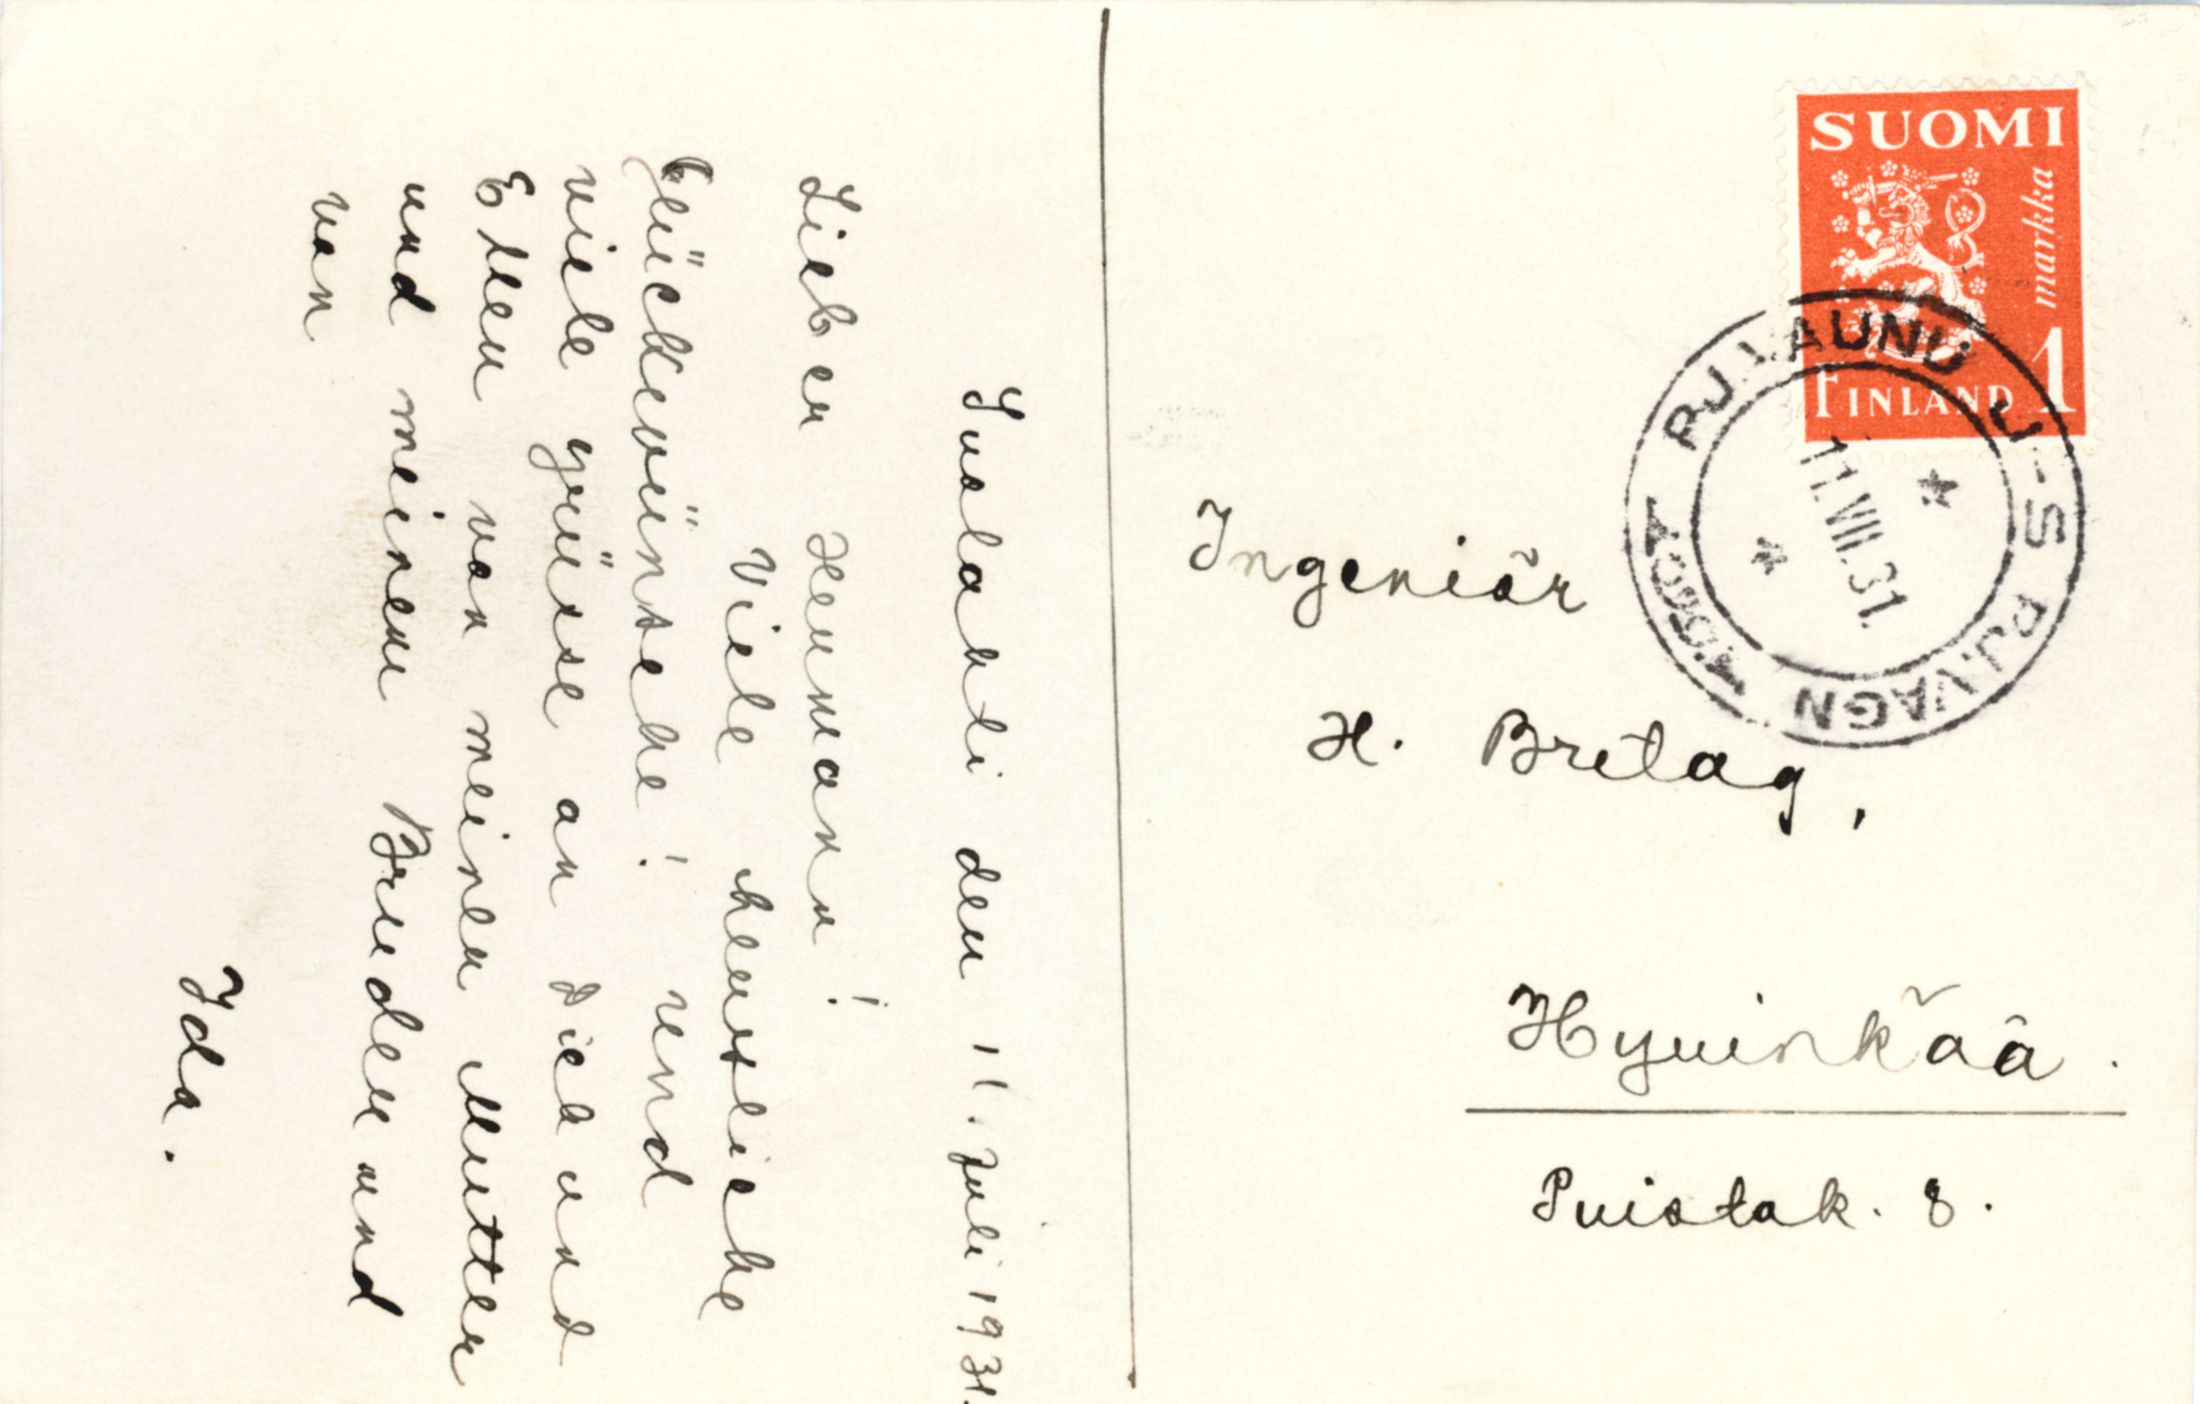 Suolahti den 11. Juli 1931.
Lieber Hermann!
Viele herzliche
Glückwünsche! und
viele grüsse an Dich und
Ellen von meiner Mutter
und meinem Bruder und
von
Ida.
SUOMI
markka
1
FINLAND
11.VII.31.
PJ.VAGN
Ingeniör
H. Bretag,
Hyvinkää.
Puistok. 8.